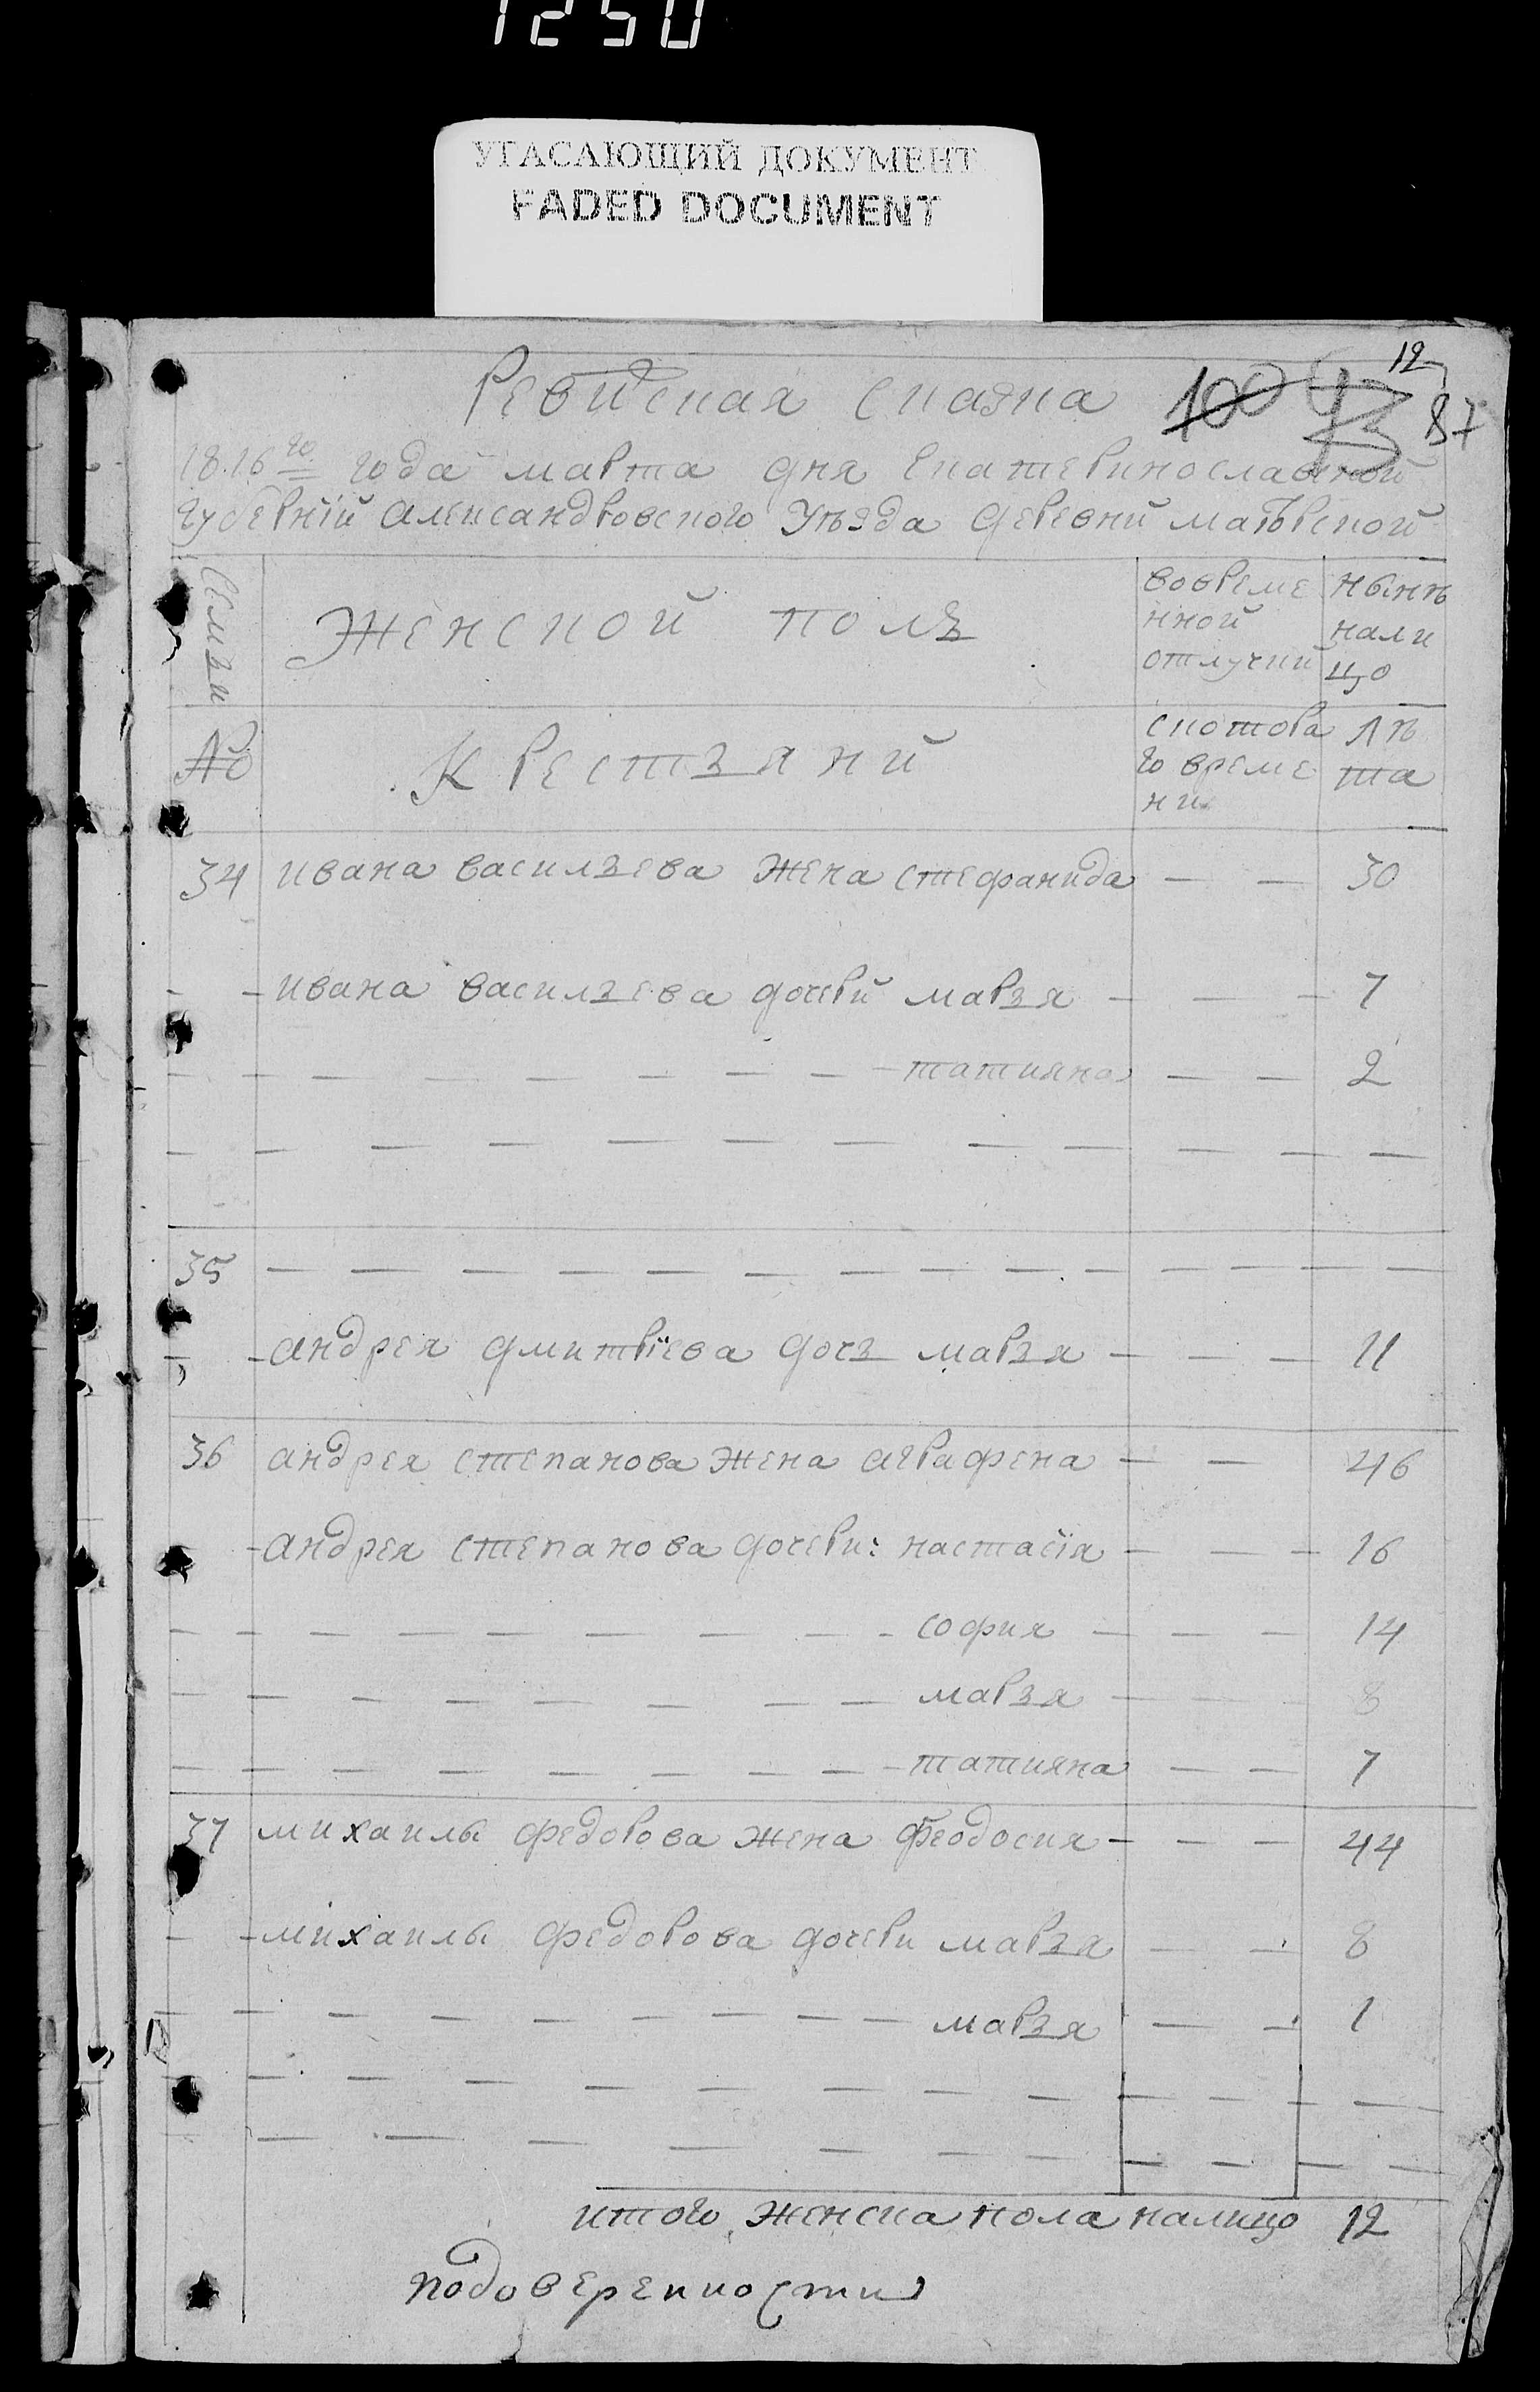 1250
УГАСАЮЩИЙ ДОКУМЕНТ
FADED DOCUMENT
12
Ревиская сказка 100 43 87
1816го года марта дня Екатеринославской
губернїй александровского уѣзда деревни
Семьи
женской полъ
вовреме
нной
отлучки
нынѣ
нали
цо
№
крестьяни
скотора
го време
ни
лѣ
та
34 ивана васильева жена стефанида — — 30
ивана васильева дочерй марья — — — 7
татияна — — 2
35
андрея дмитрїева дочь марья — — — 11
36 андрея степанова жена аграфена — — 46
андрея степанова дочери: настасїя — — — 16
софия — — — 14
марья — — — 8
татияна — — 7
37 михаилы федорова жена феодосия — — — 44
михаилы федорова дочери марья — — 8
марья — — 1
итого женска пола налицо 12
подоверенности